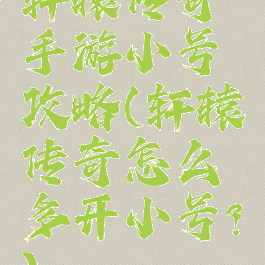 轩辕传奇
手游小号
攻略(轩辕
传奇怎么
多开小号?
)